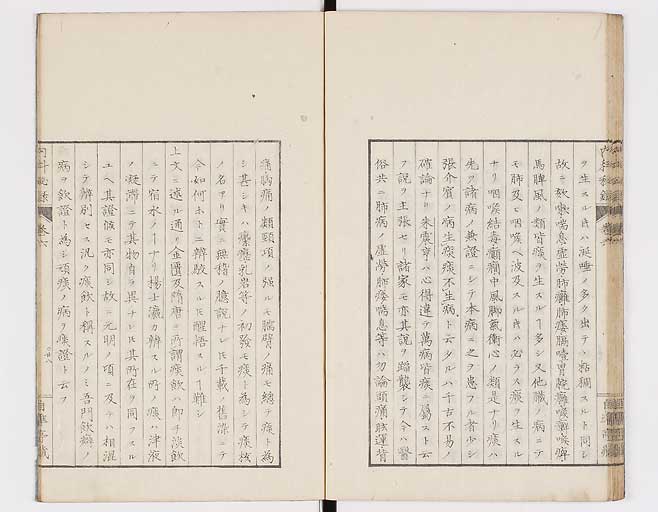 ヲ生スル󠄁ハ涎唾ノ多ク出テヽ粘稠スルト同シ
故ニ欬嗽喘息虚勞肺癰肺痿膈噎胃脘癰喉癬喉痺
馬脾風ノ類皆痰ヲ生スルヿ多シ又他臟ノ病ニテ
モ肺及ヒ咽喉ヘ波及スル ハ必ラス痰ヲ生スル
ナリ咽喉結毒癲癇中風脚氣衝心ノ類是ナリ痰ハ
先ツ諸病ノ兼證ニシテ本病ニ之ヲ患フル者少シ
張介賓ノ病生痰痰不生病ト云タルハ千古不易ノ
確論ナリ朱震亨ハ心得違テ萬病皆痰ニ屬スト云
フ説ヲ主張セリ諸家モ亦其説ヲ踏襲シテ今ハ醫
俗共ニ肺病ノ虚勞肺痿喘息等ハ勿論頭痛眩運背
痛胸痛 頸項ノ强ルモ臑臂ノ痛モ總テ痰ト為
シ甚シキハ瘰癧乳岩等ノ初發モ痰ト為シテ痰核
ノ名アリ實ニ無稽ノ臆説ナレ 千載ノ舊染ニテ
今如何ホトニ辨駁スル 醒悟スルヿ難シ
上文ニ述ル通リ金匱及隋唐ニ所謂痰飲ハ即チ淡飲
ニテ宿水ノヿナリ楊士瀛カ辨スル所ノ痰ハ津液
ノ凝滯ニテ其物自ラ異ナレ 其所在ヲ同フスル
ユヘ其證候モ亦同シ故ニ元明ノ頃ニ及テハ相混
シテ辨別セス汎ク痰飲ト稱スルノミ吾門飲癖ノ
病ヲ飲證ト為シ頑痰ノ病ヲ痰證ト云フ
内科秘錄
卷六